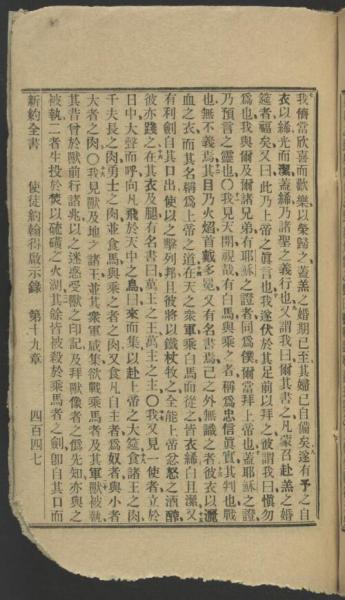 我儕當欣喜而歡樂以榮歸之蓋羔之婚期已至其婦已自備矣遂有予之自
衣以絺光而潔蓋絺乃諸聖之義行也又謂我曰爾其書之凡蒙召赴羔之婚
筵者福矣又曰此乃上帝之眞言也我遂伏於其足前以拜之彼謂我曰愼勿
爲也我與爾及爾諸兄弟有耶穌之證者同爲僕爾當拜上帝也蓋耶穌之證
乃預言之靈也〇我見天開視哉有白馬與乘之者稱爲忠信眞實其判也戰
也無不義焉其目乃火焰首戴多冕又有名書焉己之外無識之者彼衣以灑
血之衣而其名稱爲上帝之道在天之衆軍乘白馬而從之皆衣絺白且潔又
有利劍自其口出使以之擊列邦且彼將以鐵杖牧之全能上帝忿怒之酒醡
彼亦踐之在其衣及腿有名書曰萬王之王萬主之主〇我又見一使者立於
日中大聲而呼向凡飛於天中之鳥曰來而集以赴上帝之大筵食諸王之肉
千夫長之肉勇士之肉並食馬與乘之者之肉又食凡自主者爲奴者與小者
大者之肉〇我見獸及地之諸王並其衆軍咸集欲戰乘馬者及其軍獸被執
其昔曾於獸前行諸兆以之迷惑受獸之印記及拜獸像者之僞先知亦與之
被執二者生投於焚以硫磺之火湖其餘皆被殺於乘馬者之劍卽自其口而
新約全書 使徒約翰得啟示錄 第十九章 四百四七